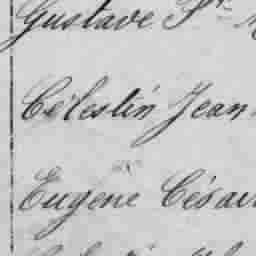 Gustave St
Célestin Jean
Eugène Césai